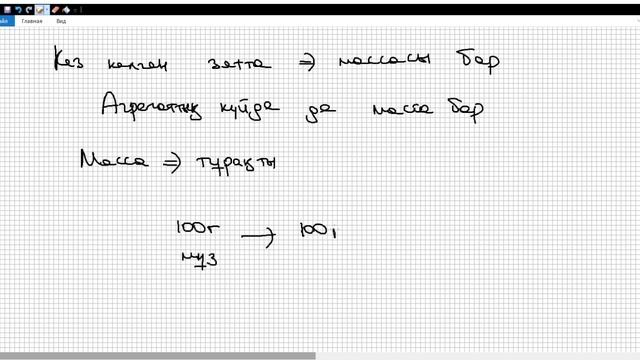 Файл Главная Вид
Кез келген затта => массасы бар
Агрегаттық күйде де масса бар
Масса => тұрақты
100г → 100г
мұз